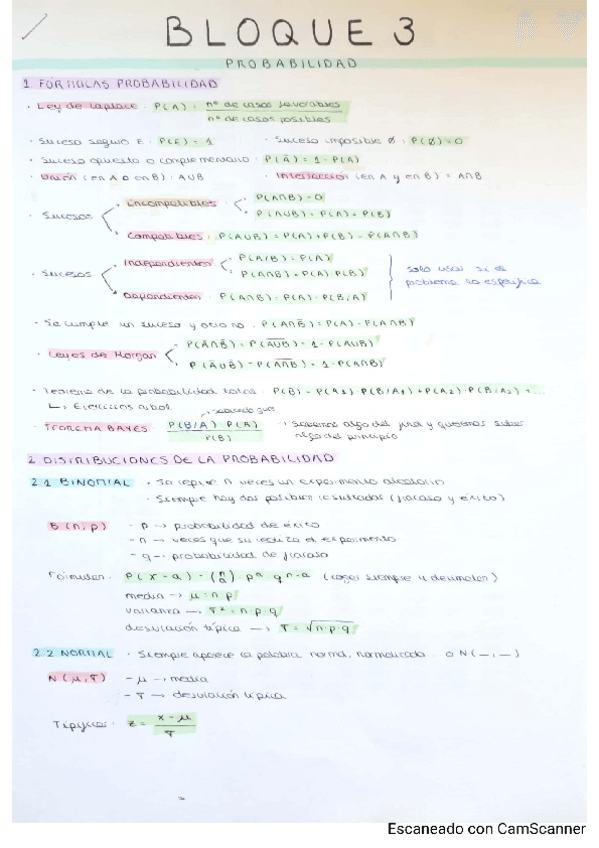 BLOQUE 3
PROBABILIDAD
1. FÓRMULAS PROBABILIDAD
· Ley de Laplace: P(A) = nº de casos favorables / nº de casos posibles
· Suceso seguro E: P(E) = 1 · Suceso imposible Ø: P(Ø) = 0
· Suceso opuesto o complementario: P(Ā) = 1 - P(A)
· Unión (en A o en B): A∪B · Intersección (en A y en B) = A∩B
· Sucesos
Incompatibles
P(A∩B) = 0
P(A∪B) = P(A) + P(B)
Compatibles: P(A∪B) = P(A) + P(B) - P(A∩B)
· Sucesos
Independientes
P(A/B) = P(A)
P(A∩B) = P(A)·P(B)
Dependientes: P(A∩B) = P(A)·P(B/A)
solo usar si el
problema lo especifica
· Se cumple un suceso y otro no: P(A∩B̄) = P(A) - P(A∩B)
· Leyes de Morgan
P(Ā∩B̄) = P(A∪B)‾ = 1 - P(A∪B)
P(Ā∪B̄) = P(A∩B)‾ = 1 - P(A∩B)
· Teorema de la probabilidad total: P(B) = P(A₁)·P(B/A₁) + P(A₂)·P(B/A₂) + ...
↳ Ejercicios árbol
sabiendo que
· TEOREMA BAYES P(B/A)·P(A) / P(B) · Sabemos algo del final y queremos saber
algo del principio
2. DISTRIBUCIONES DE LA PROBABILIDAD
2.1 BINOMIAL · Se repite n veces un experimento aleatorio
· Siempre hay dos posibles resultados (fracaso y éxito)
B(n, p) - p → probabilidad de éxito
- n → veces que se realiza el experimento
- q → probabilidad de fracaso
Fórmulas: P(X = a) = (n a)·pᵃ·qⁿ⁻ᵃ (coger siempre 4 decimales)
media → μ = n·p
varianza → σ² = n·p·q
desviación típica → σ = √n·p·q
2.2 NORMAL · Siempre aparece la palabra normal, normalizado... o N(_,_)
N(μ, σ) - μ → media
- σ → desviación típica
Tipificar: z = x - μ / σ
Escaneado con CamScanner